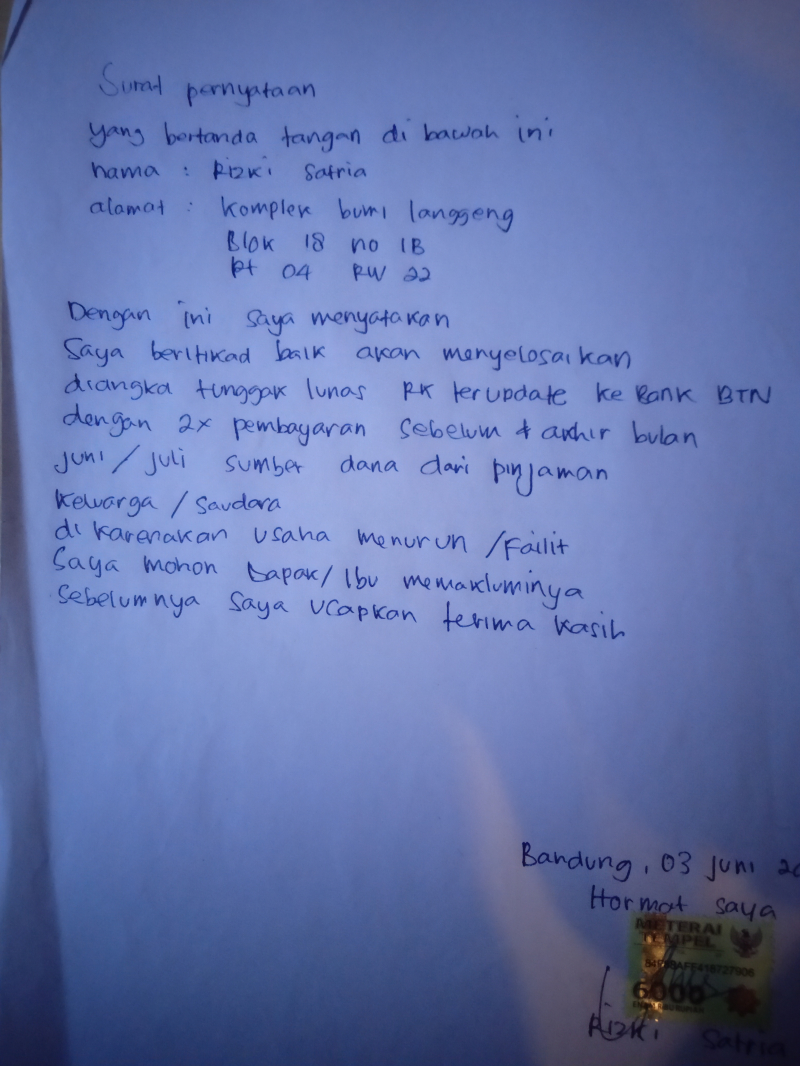 Surat pernyataan
yang bertanda tangan di bawah ini
nama : Rizki Satria
alamat : Komplek bumi langgeng
Blok 18 no 1B
Rt 04 RW 22
Dengan ini saya menyatakan
Saya beritikad baik akan menyelosaikan
diangka tunggak lunas RK terupdate ke Bank BTN
dengan 2x pembayaran sebelum + akhir bulan
juni / juli sumber dana dari pinjaman
keluarga / Saudara
di karenakan usaha menurun / Failit
Saya mohon Bapak / Ibu memakluminya
Sebelumnya saya ucapkan terima kasih
Bandung, 03 juni 20
Hormat saya
METERAI
TEMPEL
6000
Rizki Satria